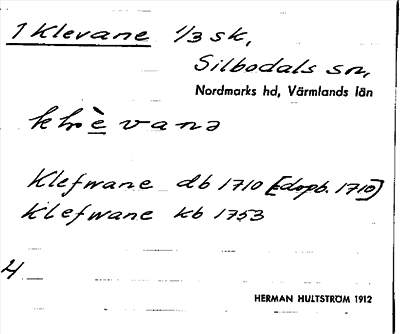 1 Klevane 1/3 sk,
Silbodals sn,
Nordmarks hd, Värmlands län
Klefwane db 1710 [dopb. 1710]
Klefwane kb 1753
HERMAN HULTSTRÖM 1912